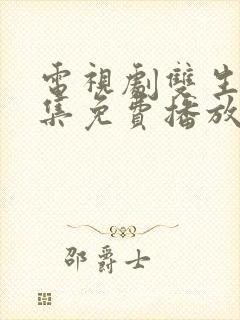 電視劇雙生
集免費播放
邵爵士